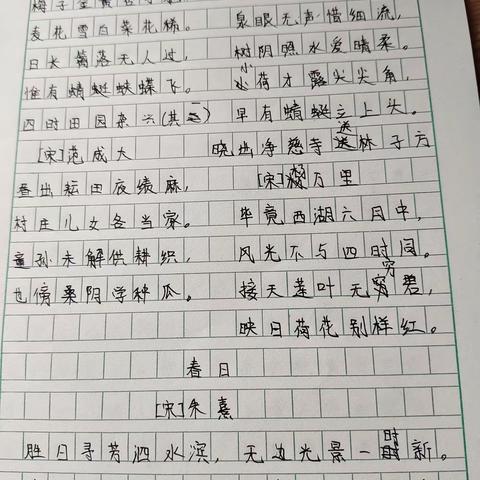 梅子金黄杏子肥，
麦花雪白菜花稀。
日长篱落无人过，
惟有蜻蜓蛱蝶飞。
四时田园杂兴(其二)
[宋]范成大
昼出耘田夜绩麻，
村庄儿女各当家。
童孙未解供耕织，
也傍桑阴学种瓜。
泉眼无声惜细流，
树阴照水爱晴柔。
小荷才露尖尖角，
早有蜻蜓立上头。
晓出净慈寺送林子方
[宋]杨万里
毕竟西湖六月中，
风光不与四时同。
接天莲叶无穷碧，
映日荷花别样红。
春日
[宋]朱熹
胜日寻芳泗水滨，无边光景一时新。